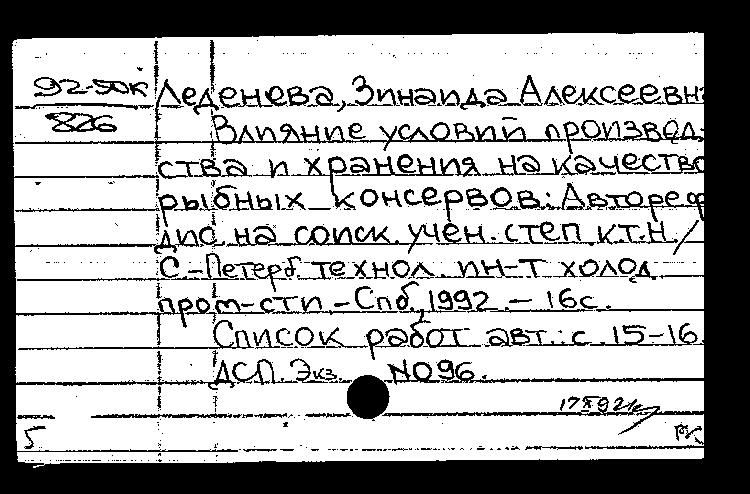 92-50к Леденева, Зинаида Алексеевн
826 Влияние условий производ-
ства и хранения на качество
рыбных консервов: Автореф
дис на соиск. учен. степ к.т.н. /
С.-Петерб. технол. ин-т холод.
пром-сти. - Спб, 1992. - 16с.
Список работ авт.: с. 15-16.
ДСП. Экз. N096.
5 РК